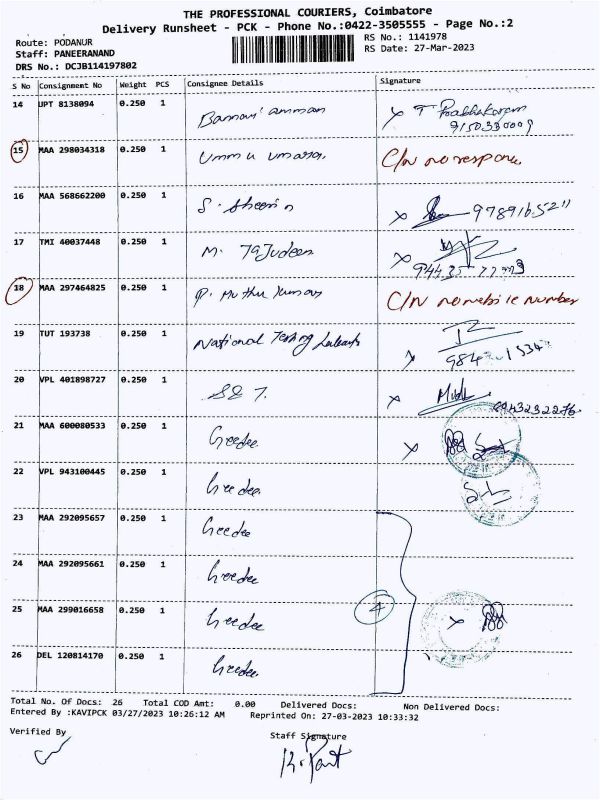 THE PROFESSIONAL COURIERS, Coimbatore
Delivery Runsheet - PCK - Phone No.:0422-3505555 - Page No.:2
Route: PODANUR
Staff: PANEERANAND
DRS No.: DCJB114197802
RS No.: 1141978
RS Date: 27-Mar-2023
S No Consignment No Weight PCS Consignee Details Signature
14 UPT 8138094 0.250 1 amman
9150330009
15 MAA 298034318 0.250 1 Ummu C/N no response
16 MAA 568662200 0.250 1 S. x
17 TMI 40037448 0.250 1 M. Tajudeen x
18 MAA 297464825 0.250 1 P. Muthu Kumar C/N no mobile number
19 TUT 193738 0.250 1 National Testing
20 VPL 401898727 0.250 1 x
21 MAA 600080533 0.250 1 Geedee x
22 VPL 943100445 0.250 1 Geedee
23 MAA 292095657 0.250 1 Geedee
24 MAA 292095661 0.250 1 Geedee
25 MAA 299016658 0.250 1 Geedee 4 x
26 DEL 120814170 0.250 1 Geedee
Total No. Of Docs: 26 Total COD Amt: 0.00 Delivered Docs: Non Delivered Docs:
Entered By :KAVIPCK 03/27/2023 10:26:12 AM Reprinted On: 27-03-2023 10:33:32
Verified By
Staff Signature